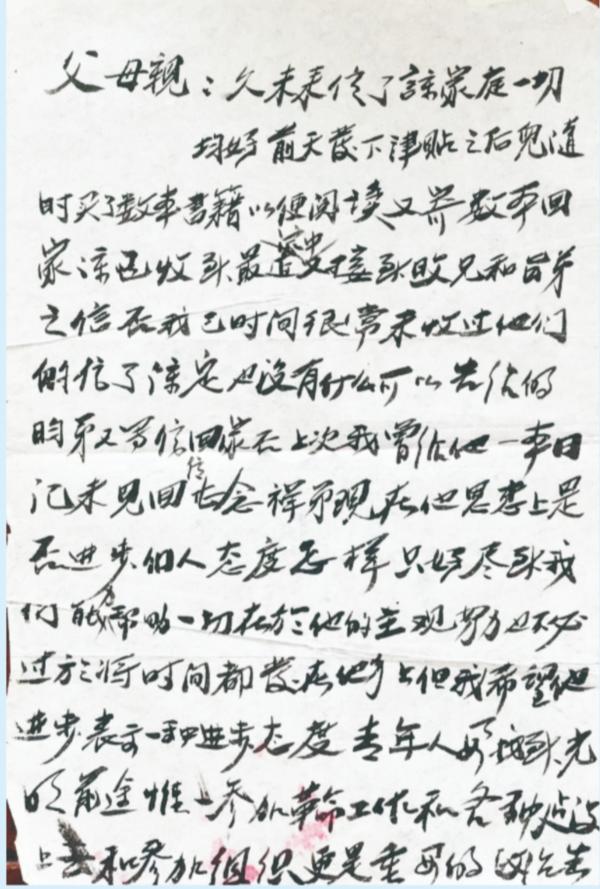 父母親：久未来信了諒家庭一切
均好前天發下津貼之后兒道
时买了数本書籍以便阅读又寄数本回
家諒已收到最近又接到政兄和苗弟
之信否我已时间很常未收过他们
的信了諒定也没有什么可以告给的
昀弟又寄信回家否上次我曾给他一本日
记未见回信甚念祥弟现在他思想上是
否进步個人态度怎样只好尽到我
们的帮助一切在於他的主观努力也不必
过於将时间都發在他身上但我希望他
进步表示一种进步态度青年人要找到光
明前途惟一参加革命工作和各种建设
上去和参加组织更是重要的